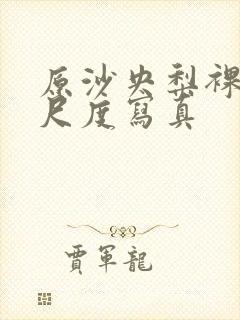 原沙央梨裸
尺度寫真
賈軍龍